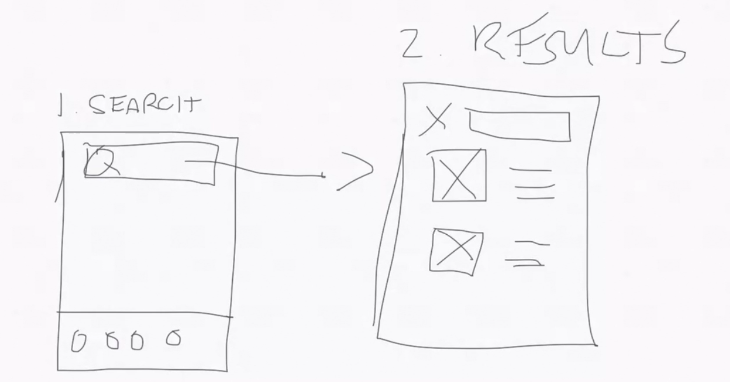 1. SEARCH
2. RESULTS